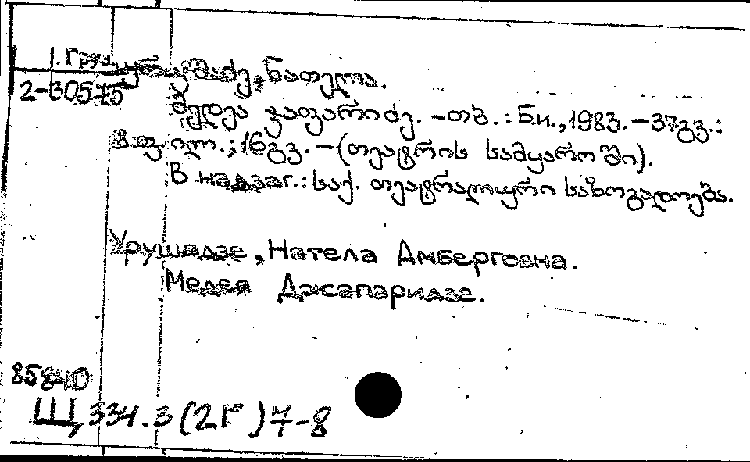 1. Груз.
ურუშაძე, ნათელა.
2-30575
მედეა ჯაფარიძე. -თბ.: Б.и., 1983. - 37გვ.:
ილ.; 16გვ. - (თეატრის სამყაროში).
В надзаг.: საქ. თეატრალური საზოგადოება.
Урушадзе, Натела Амберговна.
Медея Джапаридзе.
85840
Щ334.3(2Г)7-8